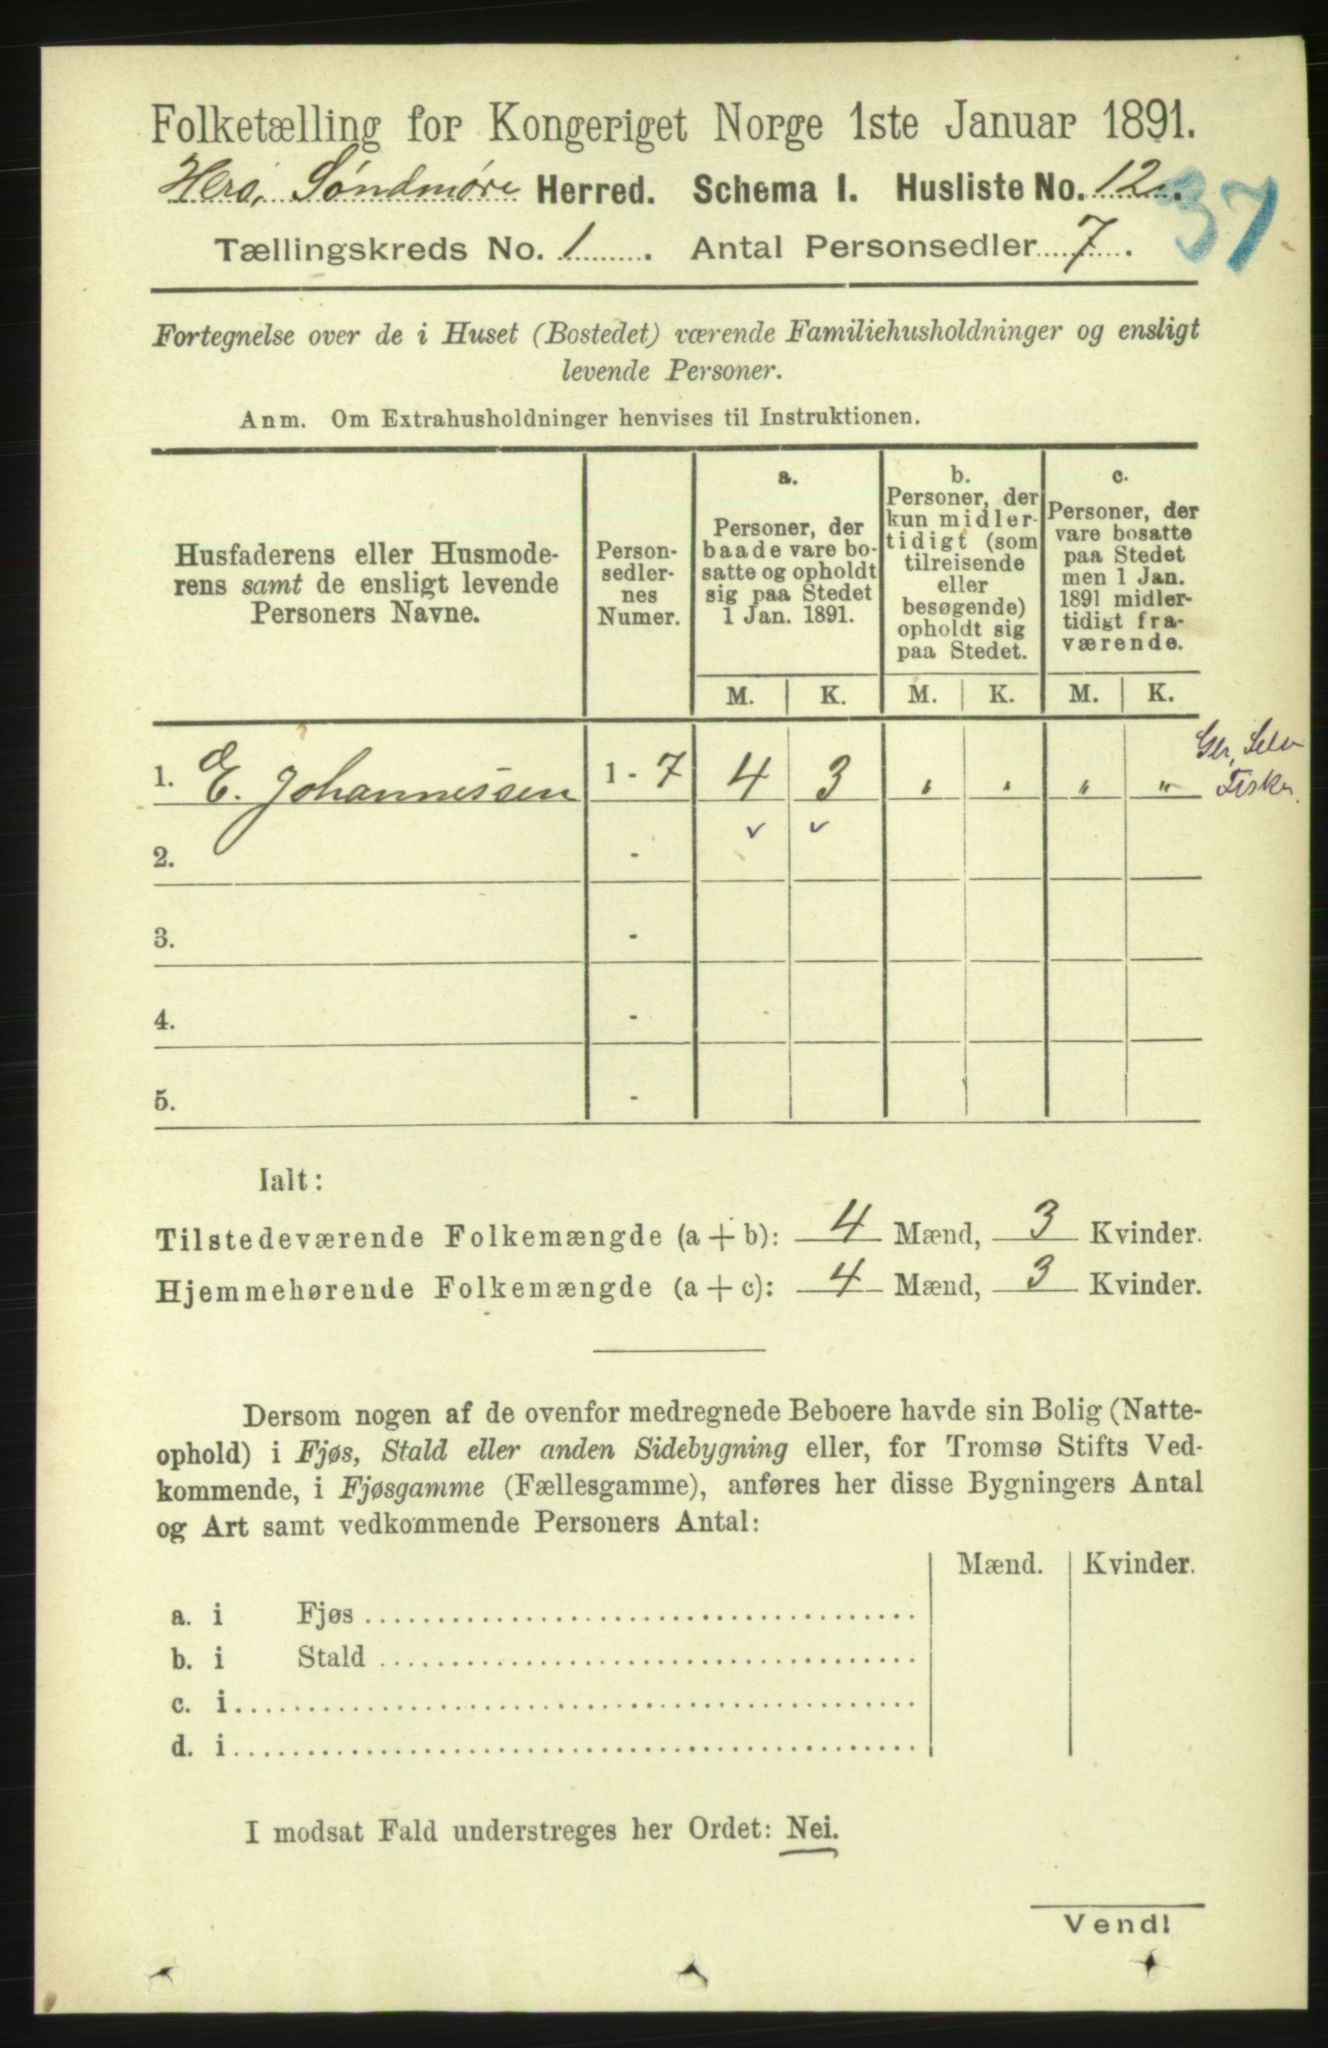 Folketælling for Kongeriget Norge 1ste Januar 1891.
Herö, Söndmöre Herred. Schema I. Husliste No. 12.
37
Tællingskreds No. 1. Antal Personsedler 7.
Fortegnelse over de i Huset (Bostedet) værende Familiehusholdninger og ensligt
levende Personer.
Anm. Om Extrahusholdninger henvises til Instruktionen.
Husfaderens eller Husmode-
rens samt de ensligt levende
Personers Navne.
Person-
sedler-
nes
Numer.
a.
Personer, der
baade vare bo-
satte og opholdt
sig paa Stedet
1 Jan. 1891.
b.
Personer, der
kun midler-
tidigt (som
tilreisende
eller
besøgende)
opholdt sig
paa Stedet.
c.
Personer, der
vare bosatte
paa Stedet
men 1 Jan.
1891 midler-
tidigt fra-
værende.
M. K. M. K. M. K.
1. E. Johannessen 1 - 7 4 3 " " " "
Fisker
v v
2. -
3. -
4. -
5. -
Ialt:
Tilstedeværende Folkemængde (a + b): 4 Mænd, 3 Kvinder.
Hjemmehørende Folkemængde (a + c): 4 Mænd, 3 Kvinder.
Dersom nogen af de ovenfor medregnede Beboere havde sin Bolig (Natte-
ophold) i Fjøs, Stald eller anden Sidebygning eller, for Tromsø Stifts Ved-
kommende, i Fjøsgamme (Fællesgamme), anføres her disse Bygningers Antal
og Art samt vedkommende Personers Antal:
Mænd. Kvinder.
a. i Fjøs
b. i Stald
c. i
d. i
I modsat Fald understreges her Ordet: Nei.
Vend!